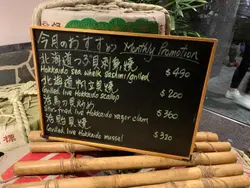 今月のおすすめ Monthly Promotion
北海道つぶ貝刺身/焼
Hokkaido sea whelk sashimi/Grilled $490
北海道帆立貝焼
Grilled live Hokkaido scallop $200
活馬刀貝炒め
Stir-fried live Hokkaido razor clam $360
活貽貝焼
Grilled live Hokkaido mussel $320